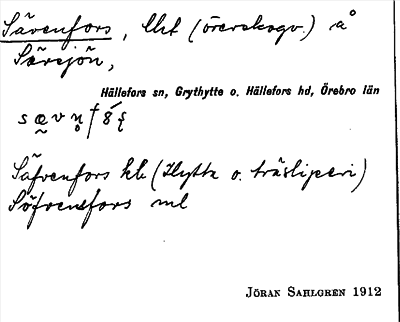 Sävenfors, lht (överskogv.) å
Sävsjön,
Hällefors sn, Grythytte o. Hällefors hd, Örebro län
Säfvenfors hk (Hytta o. träsliperi)
Söfvensfors ml
JÖRAN SAHLGREN 1912